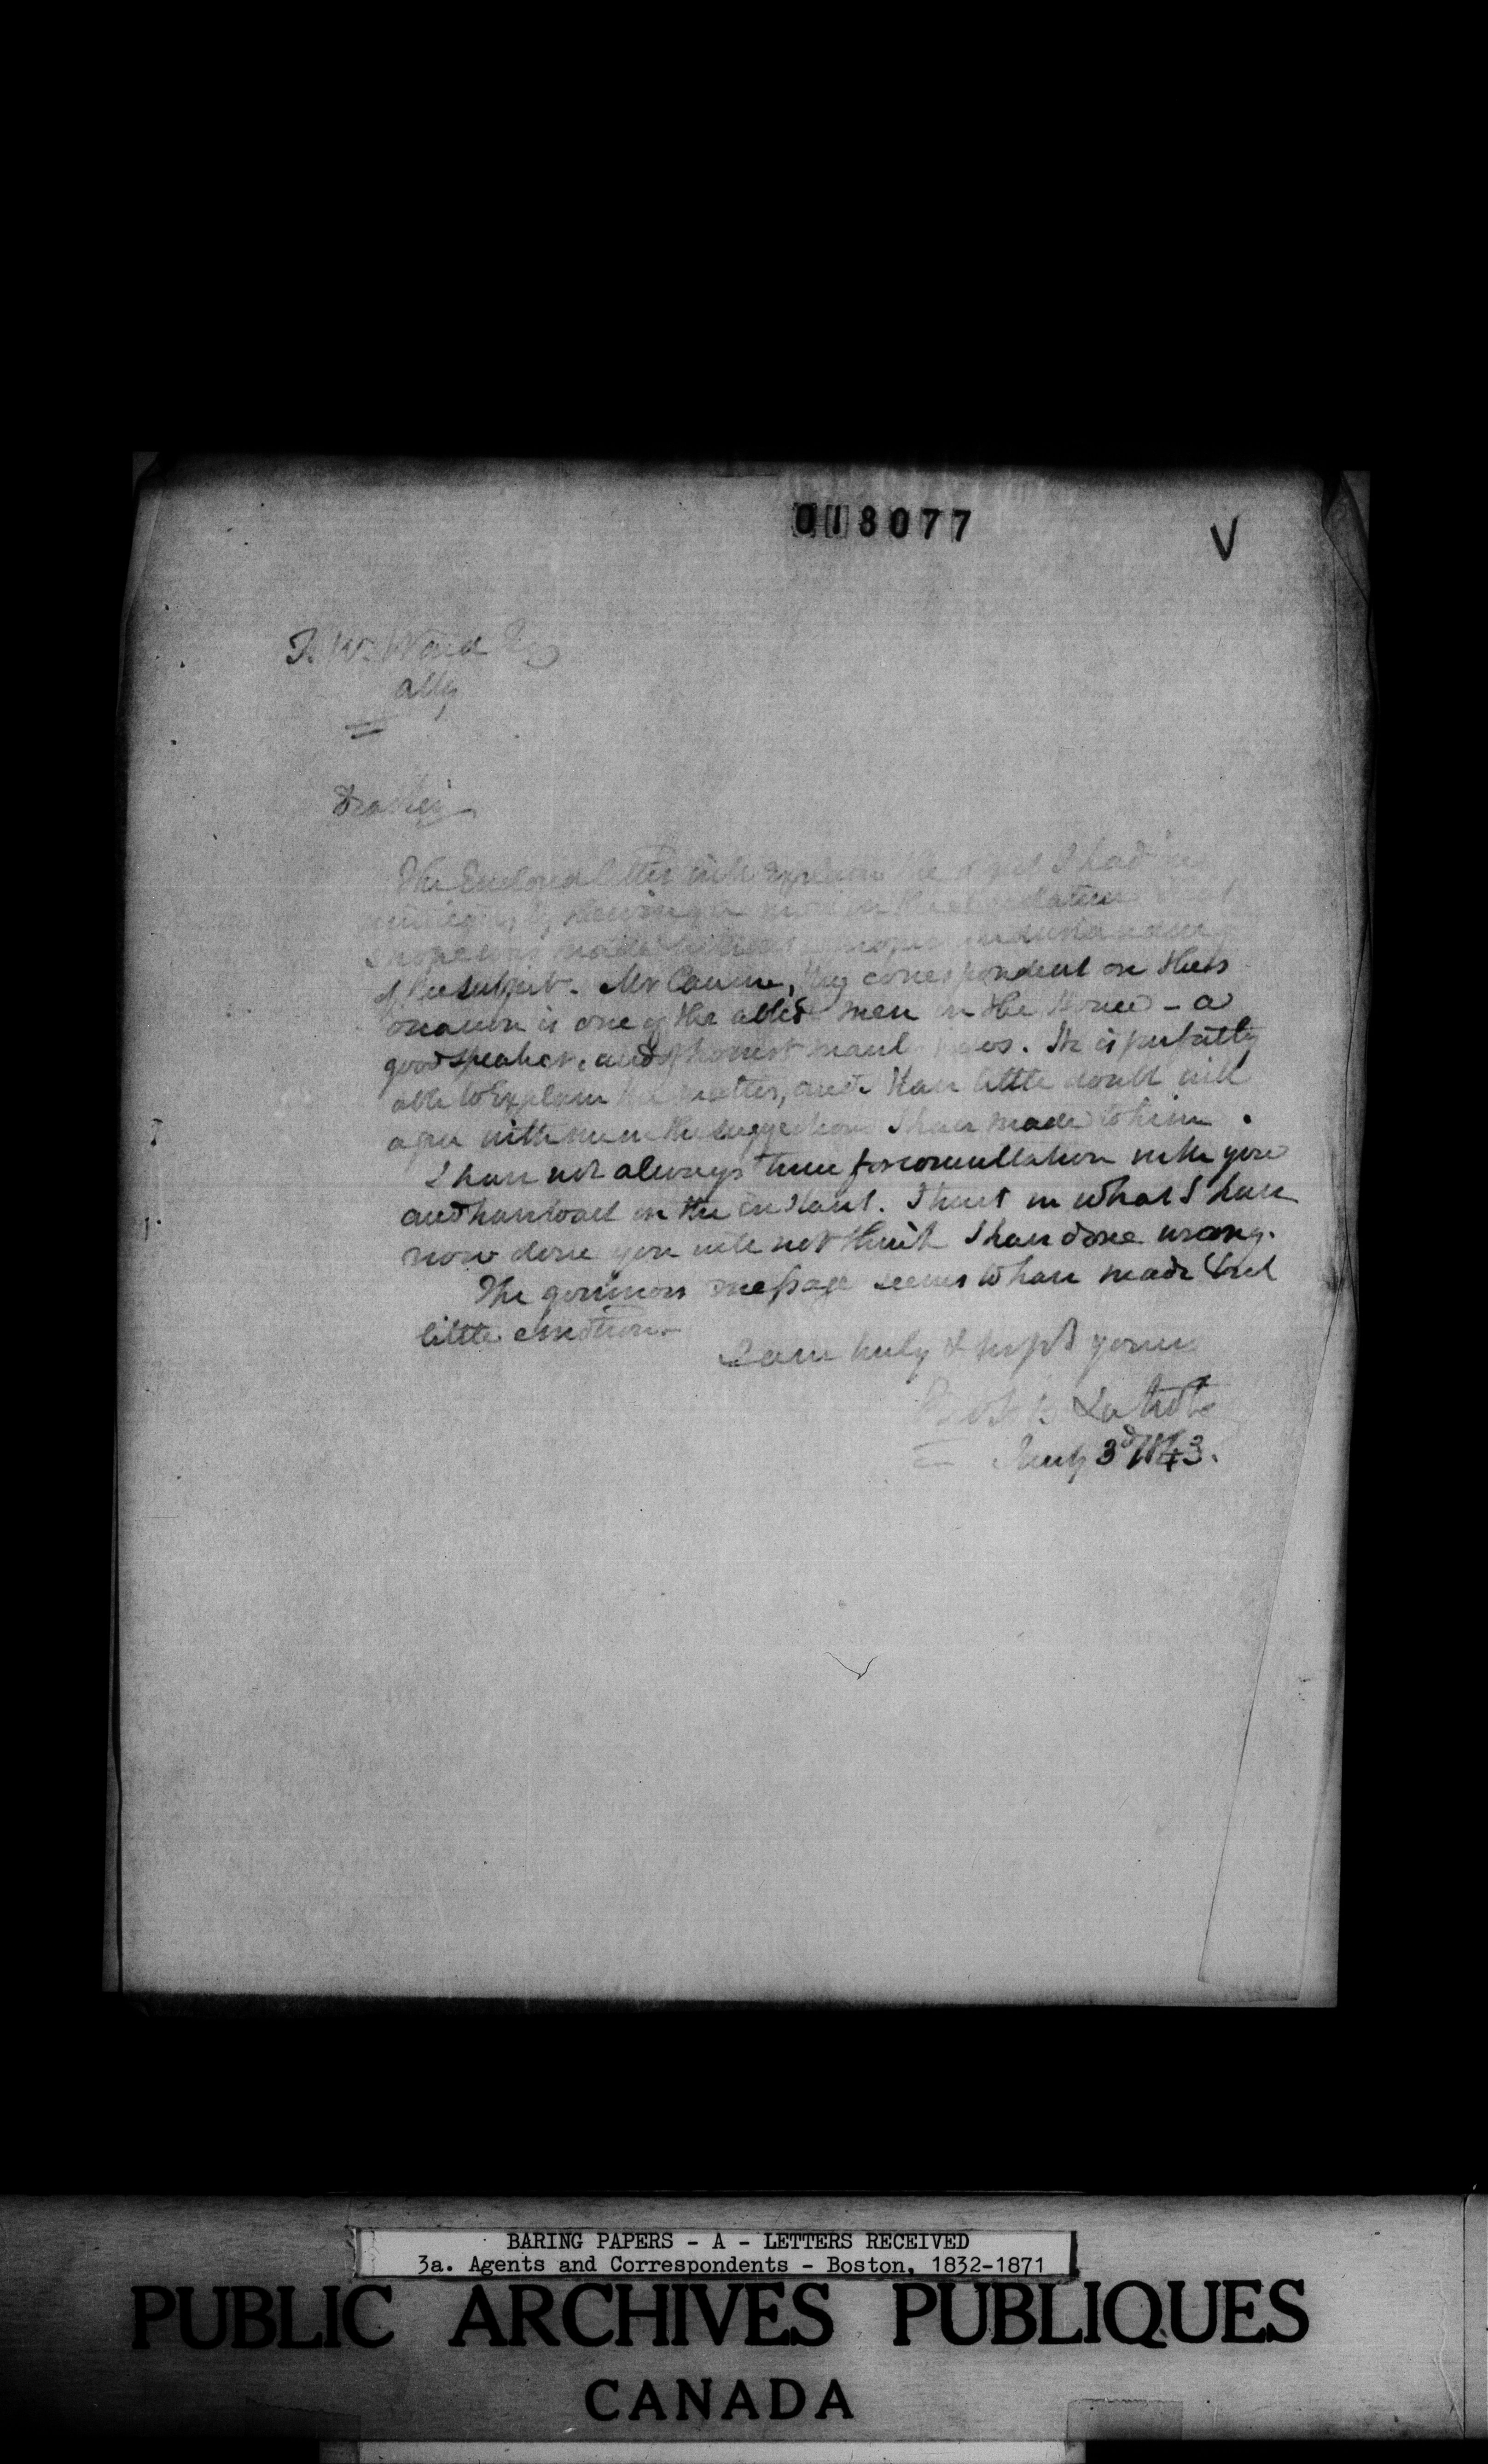 018077
V
T. W. Ward Esq
Dear Sir
The Enclosed letter will Explain the I had in
I hope was made a proper understanding
of the subject. Mr my correspondent on this
occasion is one of the ablest men in the House - a
good speaker, and of honest views. He is perfectly
able to Explain the matter, and I have little doubt will
agree with me in the suggestions I have made to him.
I have not always time for consultation with you
and have to act on the instant. I trust in what I have
now done you will not think I have done wrong.
The governors message seems to have made but
little emotion.
I am truly & respt yours
Latrobe
Jany 3d 1843.
BARING PAPERS - A - LETTERS RECEIVED
3a. Agents and Correspondents - Boston, 1832-1871
PUBLIC ARCHIVES PUBLIQUES
CANADA